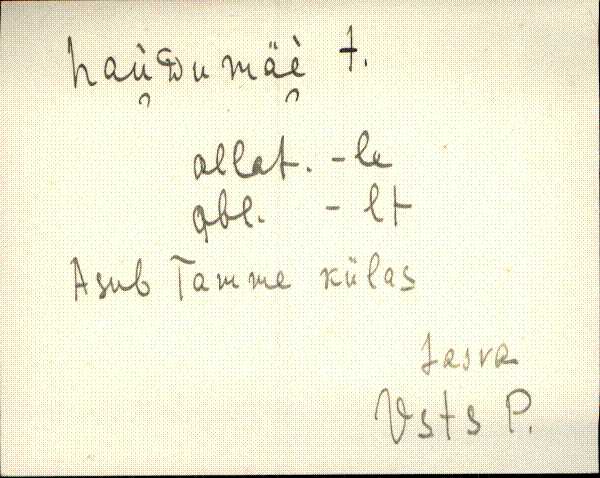 hau̯ᴅu mäe̯ t.
allat. -le
abl. - lt
Asub Tamme külas
Vsts P.